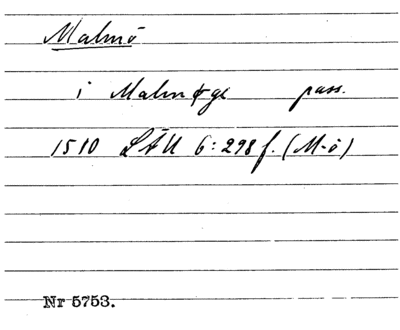 Malmö
i Malmøge pass.
1510 LÅU 6:298 f. (M-ö)
Nr 5753.